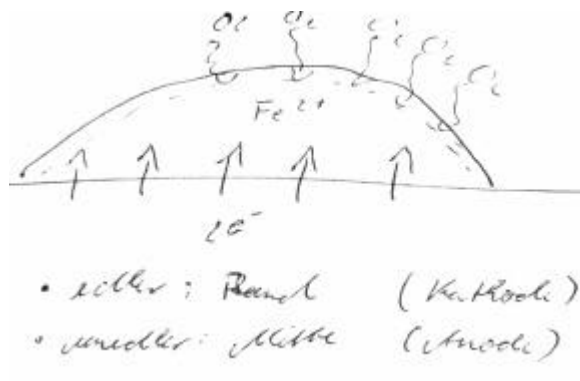 O₂ O₂ O₂ O₂ O₂
Fe²⁺
2e⁻
• edler: Rand (Kathode)
• unedler: Mitte (Anode)